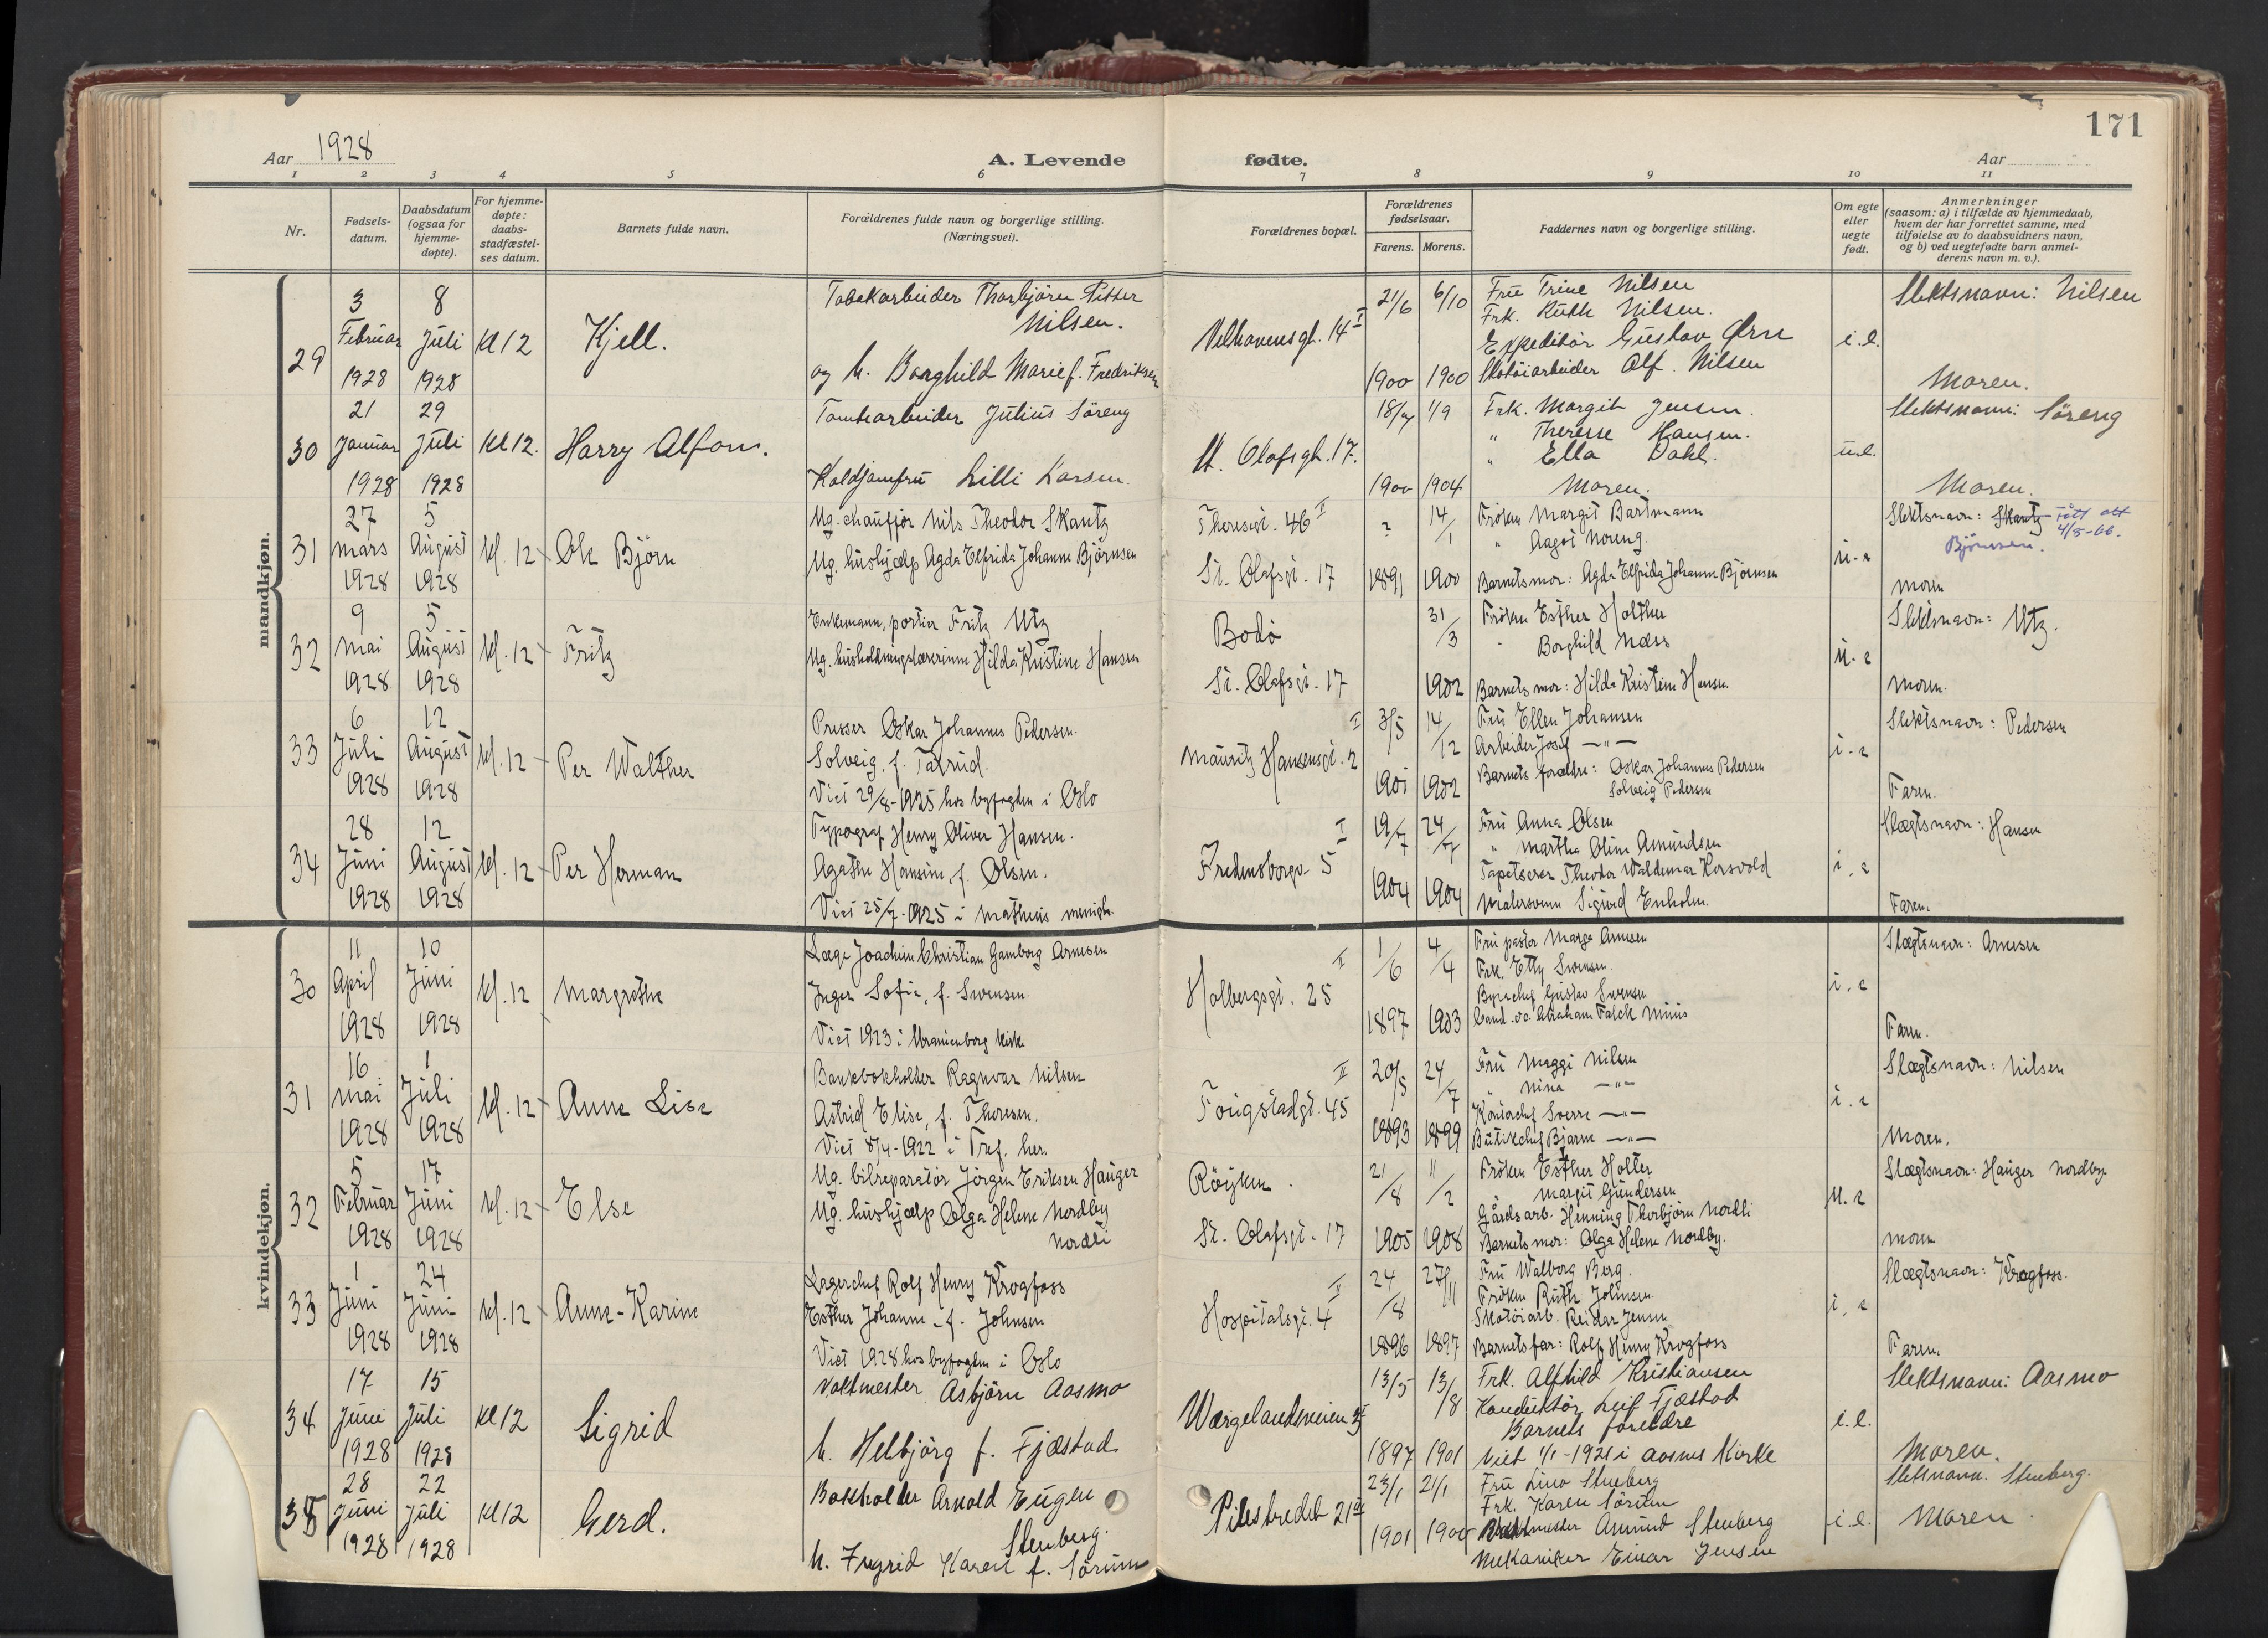 171
Aar 1928
A. Levende fødte.
Aar
1 2 3 4 5 6 7 8 9 10 11
Nr.
Fødsels-
datum.
Daabsdatum
(ogsaa for
hjemme-
døpte).
For hjemme-
døpte:
daabs-
stadfæstel-
ses datum.
Barnets fulde navn.
Forældrenes fulde navn og borgerlige stilling.
(Næringsvei).
Forældrenes bopæl.
Forældrenes
fødselsaar.
Farens. Morens.
Faddernes navn og borgerlige stilling.
Om egte
eller
uegte
født.
Anmerkninger
(saasom: a) i tilfælde av hjemmedaab,
hvem der har forrettet samme, med
tilføielse av to daabsvidners navn,
og b) ved uegtefødte barn anmel-
derens navn m. v.).
mandkjøn.
29
3 Februar 1928
8 Juli 1928
Kl 12
Kjell.
Tobakarbeider Thorbjörn Petter
Nilsen.
og h. Borghild Marie f. Fredriksen
Velhavensgt. 14 I
21/6 1900
6/10 1900
Frü Trine Nilsen
Frk. Rüth Nilsen.
Expeditör Güstav Ørn
Skotöiarbeider Alf. Nilsen
i.e.
Slektsnavn: Nilsen
Moren.
30
21 Januar 1928
29 Juli 1928
Kl 12.
Harry Alfon.
Tomtearbeider Jülius Söreng
Koldjomfrü Lilli Larsen.
St. Olafsgt. 17.
18/7 1900
1/9 1904
Frk. Margit Jensen.
" Therese Hansen.
" Ella Dahl.
Moren.
ü.e.
Slektsnavn: Söreng
Moren.
31
27 Mars 1928
5 August 1928
Kl. 12
Ole Björn
Ug. chauffjör Nils Theodor Skantz
Ug. hüshjælp Agda Elfrida Johanne Björnsen
Theresesgt. 46 II
St. Olafsgt. 17
? 1891
14/1 1900
Fröken Margit Bartmann
" Aagot Noreng.
Barnets mor: Agda Elfrida Johanne Björnsen
ü-e
Slektsnavn: Skantz
4/8-66.
Björnsen.
moren
32
9 Mai 1928
5 August 1928
Kl. 12
Fritz
Enkemann, portier Fritz Utz
Ug. hüsholdningslærerinne Hilda Kristine Hansen
Bodö
St. Olafsgt. 17
31/3 1902
Fröken Esther Holther
" Borghild Næss
Barnets mor: Hilda Kristine Hansen
ü-e
Slektsnavn: Utz.
moren.
33
6 Juli 1928
12 August 1928
Kl. 12
Per Walther
Presser Oskar Johannes Pedersen.
Solveig, f. Tatrud.
Viet 29/8-1925 hos byfogden i Oslo
Mauritz Hansensgt. 2 I
3/5 1901
14/12 1902
Frü Ellen Johansen
Arbeider Josef —"—
Barnets forældre: Oskar Johannes Pedersen
Solveig Pedersen
i-e
Slektsnavn: Pedersen
Faren.
34
28 Juni 1928
12 August 1928
Kl. 12
Per Herman
Typograf Henry Oliver Hansen.
Agathe Hansine, f. Olsen.
Viet 25/7-1925 i Matheus menigh.
Fredensborgv. 5 I
19/7 1904
24/7 1904
Frü Anna Olsen
" Martha Oline Amundsen
Tapetserer Theodor Waldemar Korsvold
Malersvenn Sigurd Enholm.
i.e
Slægtsnavn: Hansen
Faren.
kvindekjøn.
30
11 April 1928
10 Juni 1928
Kl. 12
Margrethe
Læge Joachim Christian Gamborg Arnesen
Inger Sofie, f. Swensen.
Viet 1923 i Uranienborg kirke
Holbergsgt. 25 II
1/6 1897
4/4 1903
Frü pastor Marga Arnesen
Frk. Etty Swensen.
Byrachef Gustav Swensen
Cand. oc. Abraham Falck
i.e
Slægtsnavn: Arnesen
Faren.
31
16 Mai 1928
1 Juli 1928
Kl. 12
Anne Lise
Bankbokholder Ragnvar Nilsen
Astrid Elise, f. Thoresen.
Viet 8/4-1922 i Tref. her.
Fougstadgt. 45 II
20/5 1893
24/7 1899
Frü Maggi Nilsen
" Nina —"—
Kontorchef Sverre —"—
Bütikchef Bjarne —"—
i.e
Slægtsnavn: Nilsen
Moren.
32
5 Februar 1928
17 Juni 1928
Kl. 12
Else
Ug. bilreparatör Jörgen Eriksen Hauger
Ug. hüshjælp Olga Helene Nordby
Nordli
Röyken.
St. Olafsgt. 17
21/8 1905
11/2 1908
Fröken Esther Holter
Margit Gundersen
Gårdsarb. Henning Thorbjörn Nordli
Barnets mor: Olga Helene Nordby.
ü.e
Slægtsnavn: Hauger Nordby
moren
33
1 Juni 1928
24 Juni 1928
Kl. 12
Anne-Karine
Lagerchef Rolf Henry Krogfoss
Esther Johanne f. Johnsen
Viet 1928 hos byfogden i Oslo
Hospitalsgt. 4 II
24/8 1896
27/11 1897
Frü Walborg Berg.
Fröken Ruth Johnsen.
Skotöiarb. Reidar Jensen
Barnets far: Rolf Henry Krogfoss
i.e
Slægtsnavn: Krogfoss.
Faren.
34
17 Juni 1928
15 Juli 1928
Kl 12
Sigrid
Vaktmester Asbjörn Aasmo
h. Helbjörg f. Fjæstad
Wergelandsveien
13/5 1897
13/8 1901
Frk. Alfhild Kristiansen
Konduktör Leif Fjæstad
Barnets foreldre
Viet 1/1-1921 i Aasnes Kirke
i.e.
Slektsnavn: Aasmo
Moren.
35
28 Juni 1928
22 Juli 1928
Kl 12
Gerd.
Bokholder Arnold Eugen
Stenberg.
h. Ingrid Karen f. Sörum
Pilestredet 21 II
23/1 1901
21/1 1900
Frü Lina Stenberg
Frk. Karen Sörum
Amund Stenberg
Mekaniker Einar Jensen
i.e.
Slektsnavn. Stenberg.
Moren.